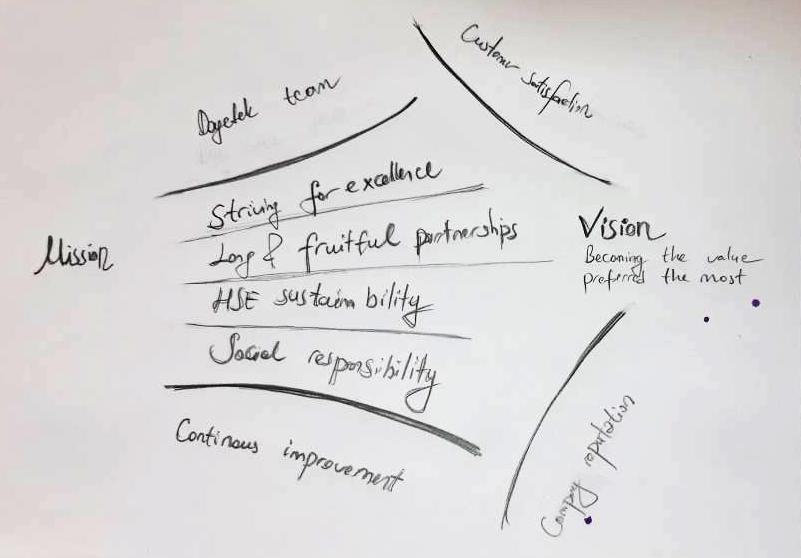 Customer satisfaction
Dogetek team
Striving for excellence
Long & fruitful partnerships
Mission
HSE sustainability
Social responsibility
Vision
Becoming the value
preferred the most
Continous improvement
Company reputation